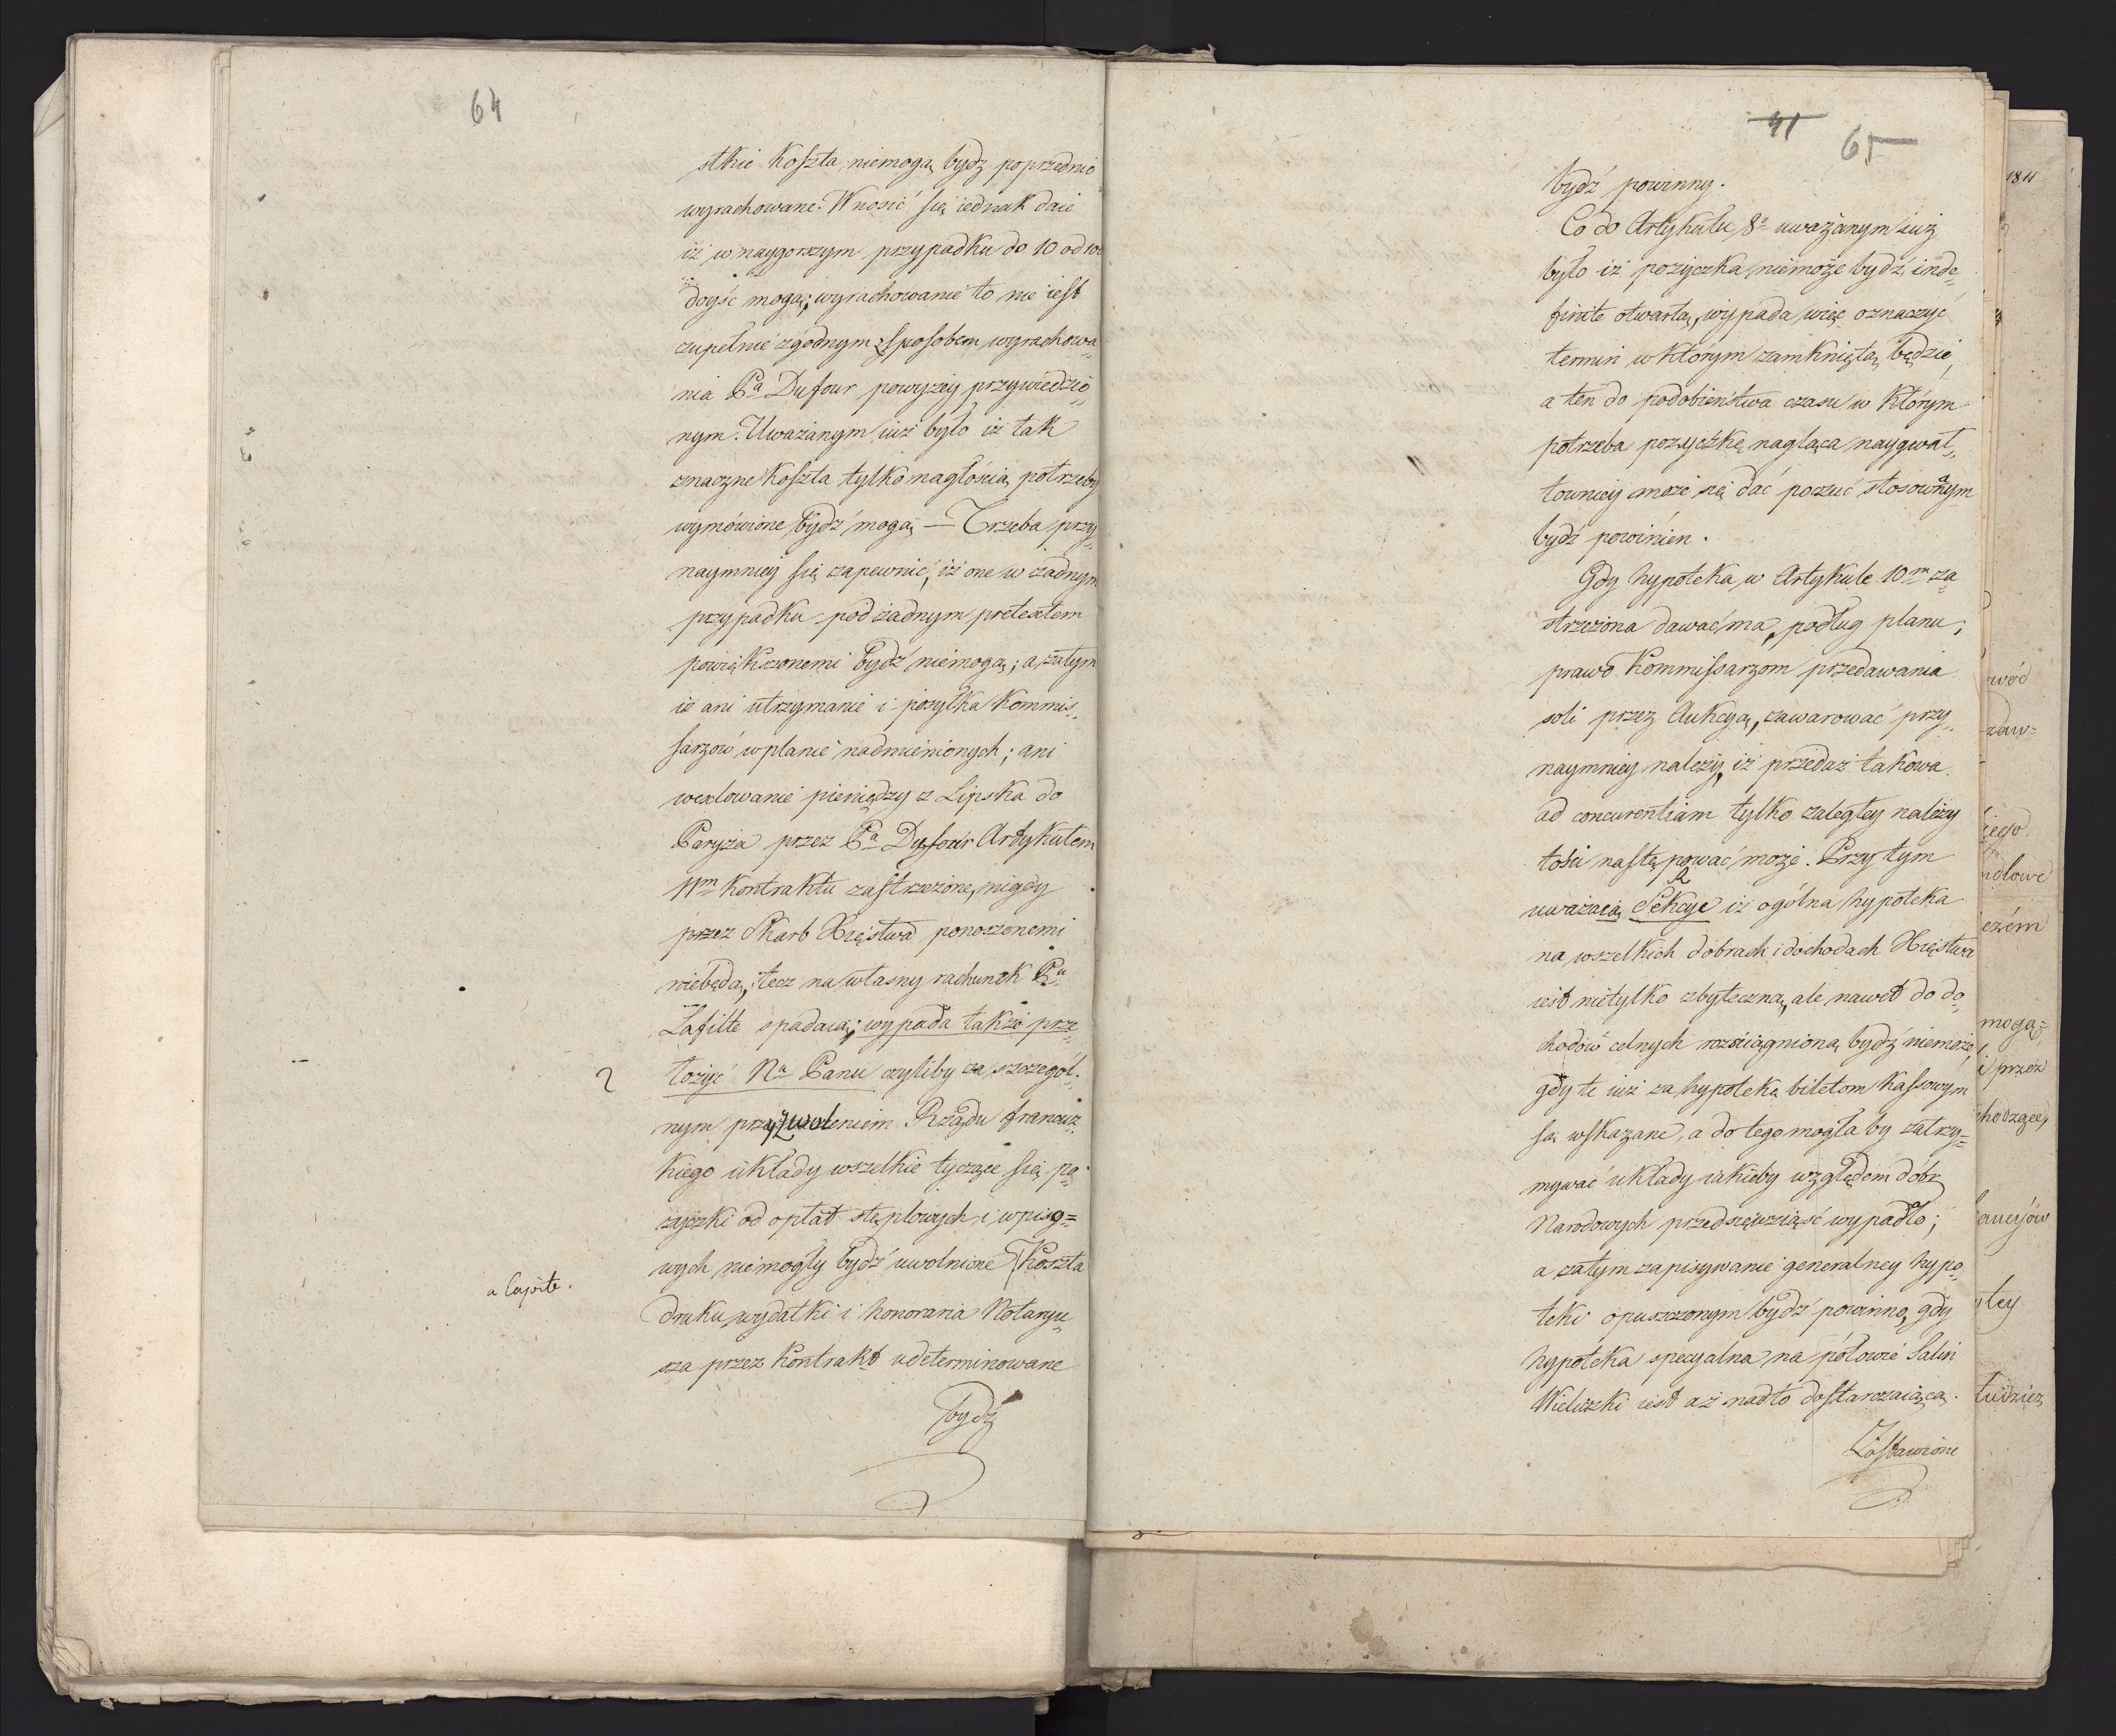 64
stkie koszta niemogą bydz poprzednio
wyrachowane. Wnosić się iednak daie
iż w naygorszym przypadku do 10 od 100
doyść mogą; wyrachowanie to nie iest
zupełnie zgodnym z sposobem wyrachowa„
nia Pa Dufour powyzéy przywiedzio„
nym. Uważanym iuż było iż tak
znaczne koszta tylko nagłością potrzeby
wymówione bydź mogą — Trzeba przy„
naymniey się zapewnić, iż one w żadnym
przypadku pod żadnym pretextem
powiększonemi bydź niemogą; a zatym
iż ani utrzymanie i posyłka Kommis„
sarzow w planie nadmienionych; ani
wexlowanie pieniędzy z Lipska do
Paryża przez Pa Dufour Artykułem
11m Kontraktu zastrzeżone, nigdy
przez Skarb Xięstwa ponoszonemi
niebędą, lecz na własny rachunek Pa
Lafitte spadaią; wypada także prze„
łożyć Na Panu czyliby za szczegól„
nym przyzwoleniem Rządu francuz„
kiego układy wszelkie tyczące się po„
zyczki od opłat stęplowych i wpiso=
wych niemogły bydź uwolnione [Koszta
a Capite.
druku wydatki i honoraria Notaryu„
sza przez kontrakt udeterminowane
bydź
41 65
bydź powinny.
Co do Artykułu 8o uważanym iuż
było iż pożyczka niemoże bydź inde„
finite otwartą, wypada więc oznaczyć
termin w którym zamkniętą będzie,
a ten do podobieństwa czasu w którym
potrzeba pozyczkę nagląca naygwał„
towniey może się dać poczuć stosowanym
bydź powinien.
Gdy hypoteka w Artykule 10m za„
strzeżona dawać ma, podług planu,
prawo Kommissarzom przedawania
soli przez Aukcyą, zawarować przy„
naymniey należy, iż przedaż takowa
ad concurentiam tylko zaległey należy
tości następować może. Przy tym
uważaią Sekcye iż ogólna hypoteka
na wszelkich dobrach i dochodach Xięstwa
iest nietylko zbyteczną, ale nawet do do„
chodów celnych rozciągnioną bydź niemoże,
gdy te iuż za hypotekę biletom kassowym
są wskazane, a do tego mogła by zatrzy=
mywać układy iakieby względem dóbr
Narodowych przedsięwziąść wypadło;
a zatym zapisywanie generalney hypo„
teki opuszczonym bydź powinno, gdy
hypoteka specyalna na połowie Salin
Wieliczki iest aż nadto dostarczaiącą.
Zostawione
1811
wód
zaw=
iego
ndlowe
mogą=
i przez
chodzące,
tey